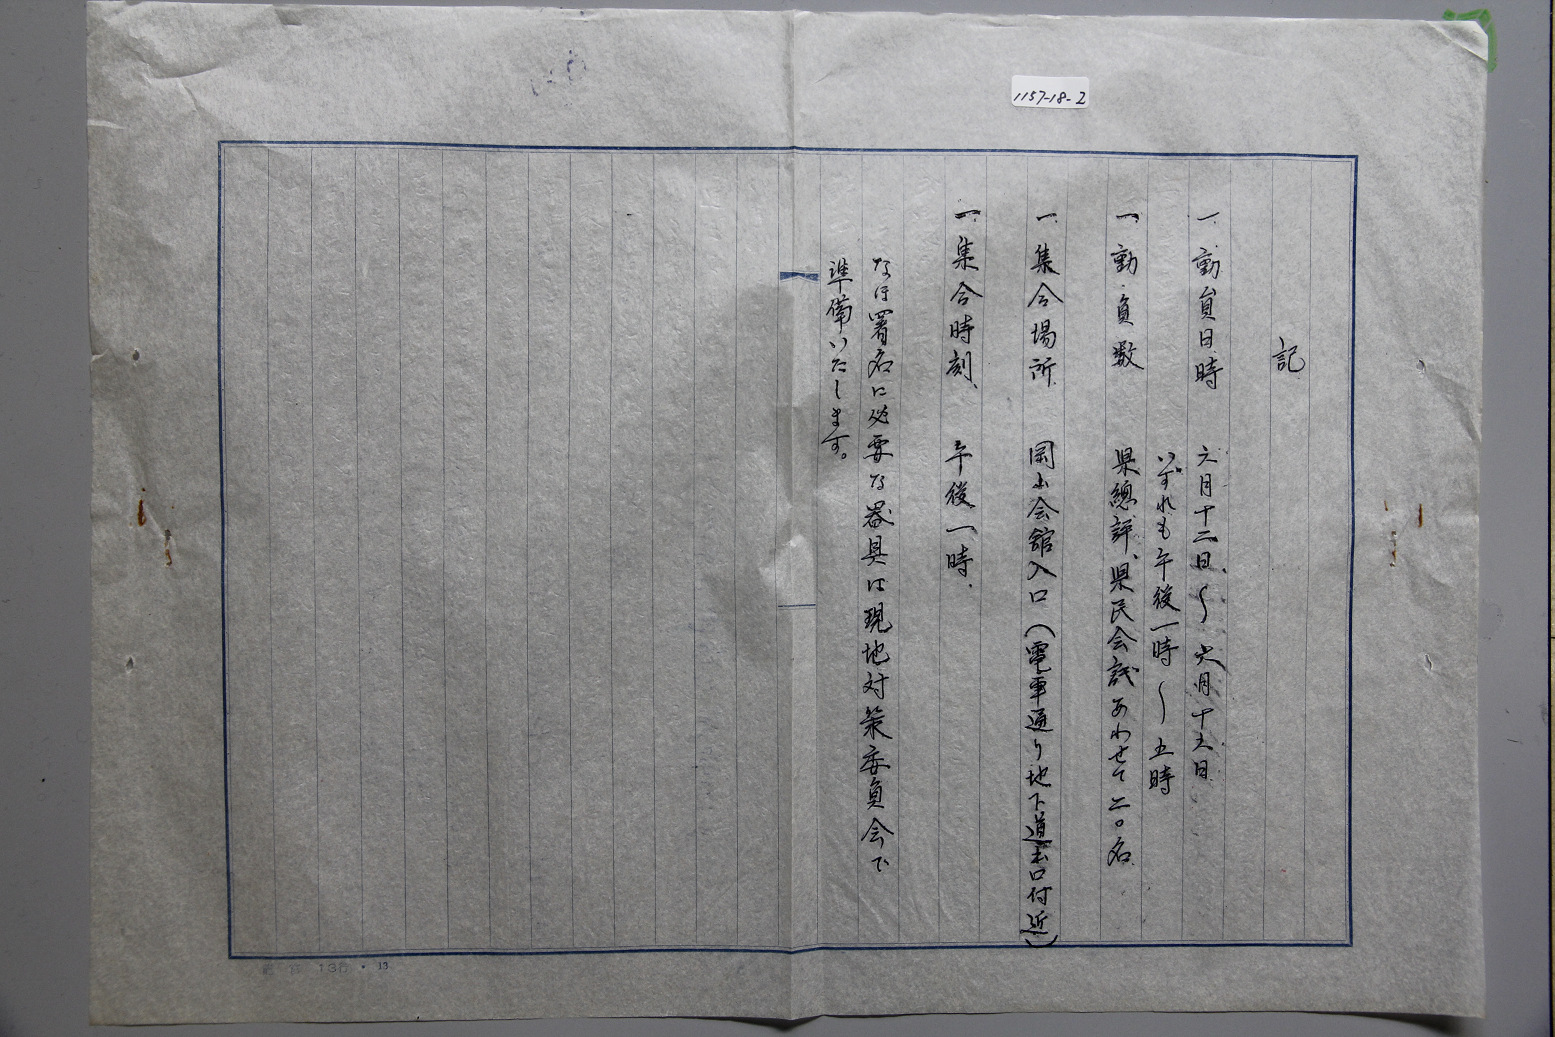 1157-18-2
記
一、動員日時　六月十三日、〜六月十五日
いずれも午後一時〜五時
一、動員数　県總評、県民会議あわせて二〇名
一、集合場所　岡山会館入口（電車通り地下道出口付近）
一、集合時刻、午後一時、
なほ署名に必要な器具は現地対策委員会で
準備いたします。
13行・13